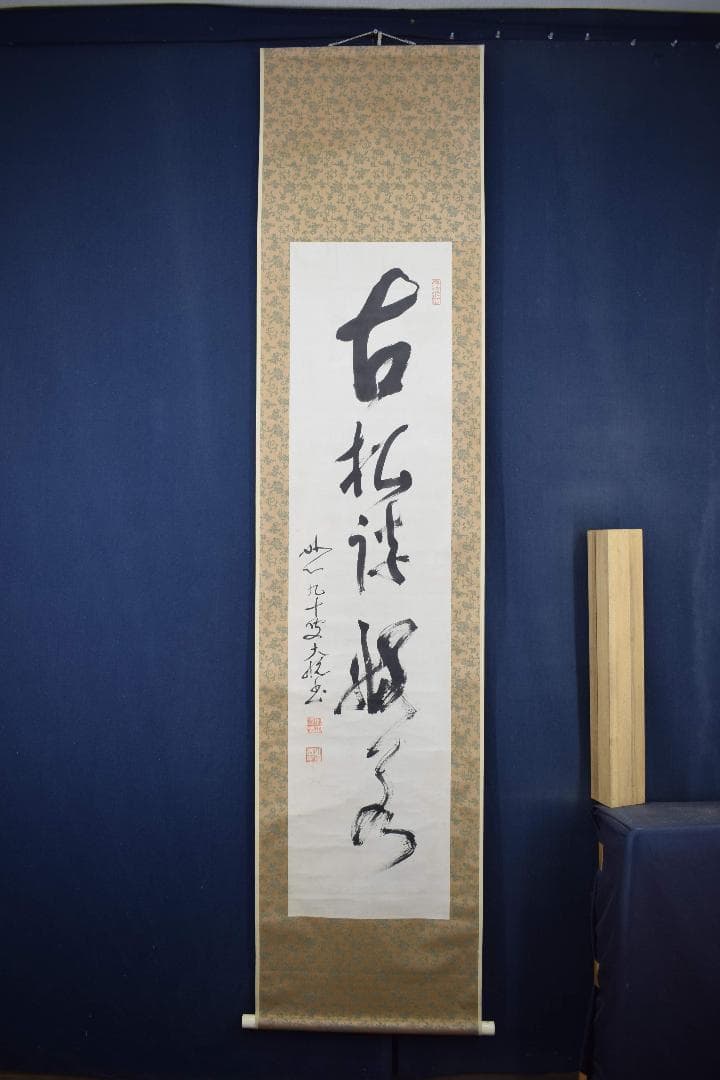 古松談般若
妙心九十叟大拙書